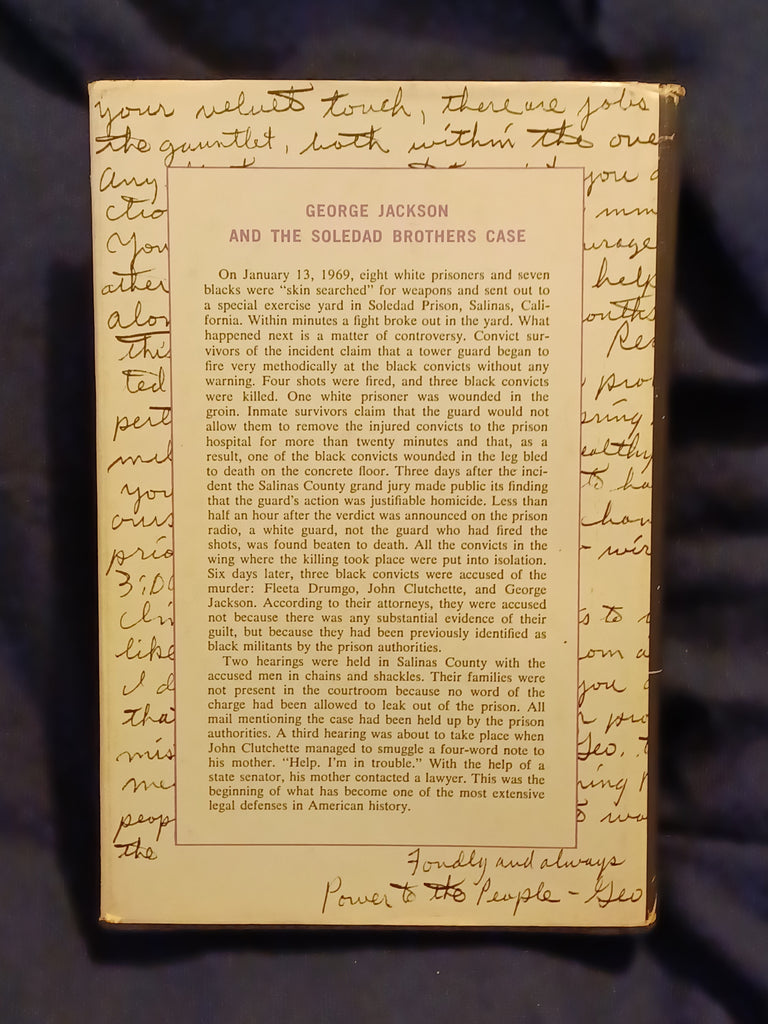 your velvet touch, there are jobs
the gauntlet, both within the one
any
you
GEORGE JACKSON
AND THE SOLEDAD BROTHERS CASE
On January 13, 1969, eight white prisoners and seven
blacks were “skin searched” for weapons and sent out to
a special exercise yard in Soledad Prison, Salinas, Cali-
fornia. Within minutes a fight broke out in the yard. What
happened next is a matter of controversy. Convict sur-
vivors of the incident claim that a tower guard began to
fire very methodically at the black convicts without any
warning. Four shots were fired, and three black convicts
were killed. One white prisoner was wounded in the
groin. Inmate survivors claim that the guard would not
allow them to remove the injured convicts to the prison
hospital for more than twenty minutes and that, as a
result, one of the black convicts wounded in the leg bled
to death on the concrete floor. Three days after the inci-
dent the Salinas County grand jury made public its finding
that the guard's action was justifiable homicide. Less than
half an hour after the verdict was announced on the prison
radio, a white guard, not the guard who had fired the
shots, was found beaten to death. All the convicts in the
wing where the killing took place were put into isolation.
Six days later, three black convicts were accused of the
murder: Fleeta Drumgo, John Clutchette, and George
Jackson. According to their attorneys, they were accused
not because there was any substantial evidence of their
guilt, but because they had been previously identified as
black militants by the prison authorities.
Two hearings were held in Salinas County with the
accused men in chains and shackles. Their families were
not present in the courtroom because no word of the
charge had been allowed to leak out of the prison. All
mail mentioning the case had been held up by the prison
authorities. A third hearing was about to take place when
John Clutchette managed to smuggle a four-word note to
his mother. “Help. I'm in trouble.” With the help of a
state senator, his mother contacted a lawyer. This was the
beginning of what has become one of the most extensive
legal defenses in American history.
help
this
like
you
Geo.
the
Fondly and always
Power to the People - Geo